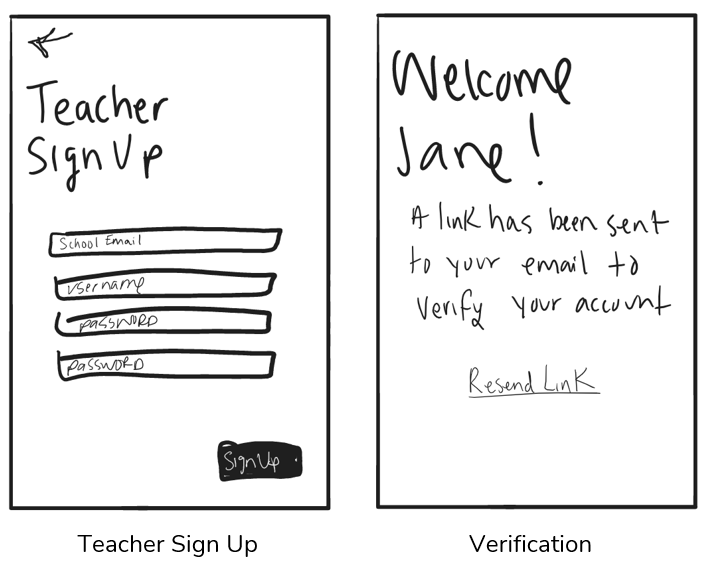 Teacher
Sign Up
School Email
username
password
password
Sign Up
Teacher Sign Up
Welcome
Jane!
A link has been sent
to your email to
verify your account
Resend Link
Verification